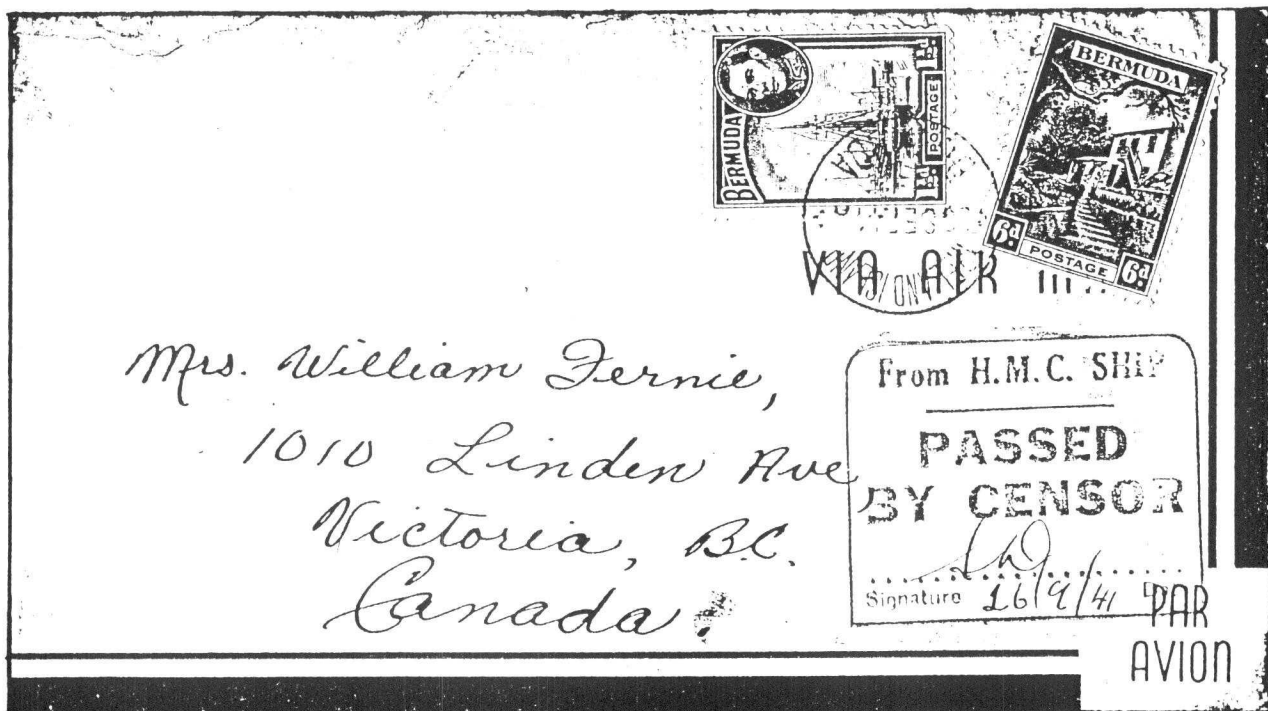 BERMUDA
1½d.
POSTAGE
1½d.
BERMUDA
6d.
POSTAGE
6d.
VIA AIR
Mrs. William Fernie,
1010 Linden Ave
Victoria, B.C.
Canada.
From H.M.C. SHIP
PASSED
BY CENSOR
Signature 16/9/41
PAR
AVION